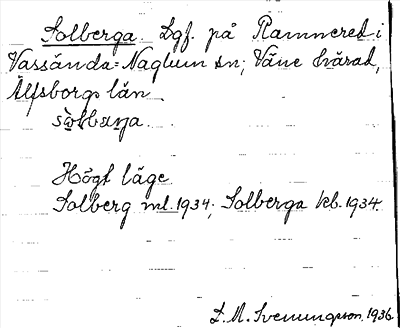 Solberga. Lgf. på Ramnered i
Vassända-Naglum sn; Väne härad,
Älfsborgs län.
Högt läge
Solberg ml. 1934; Solberga kb. 1934.
L. M. Svenungsson. 1936